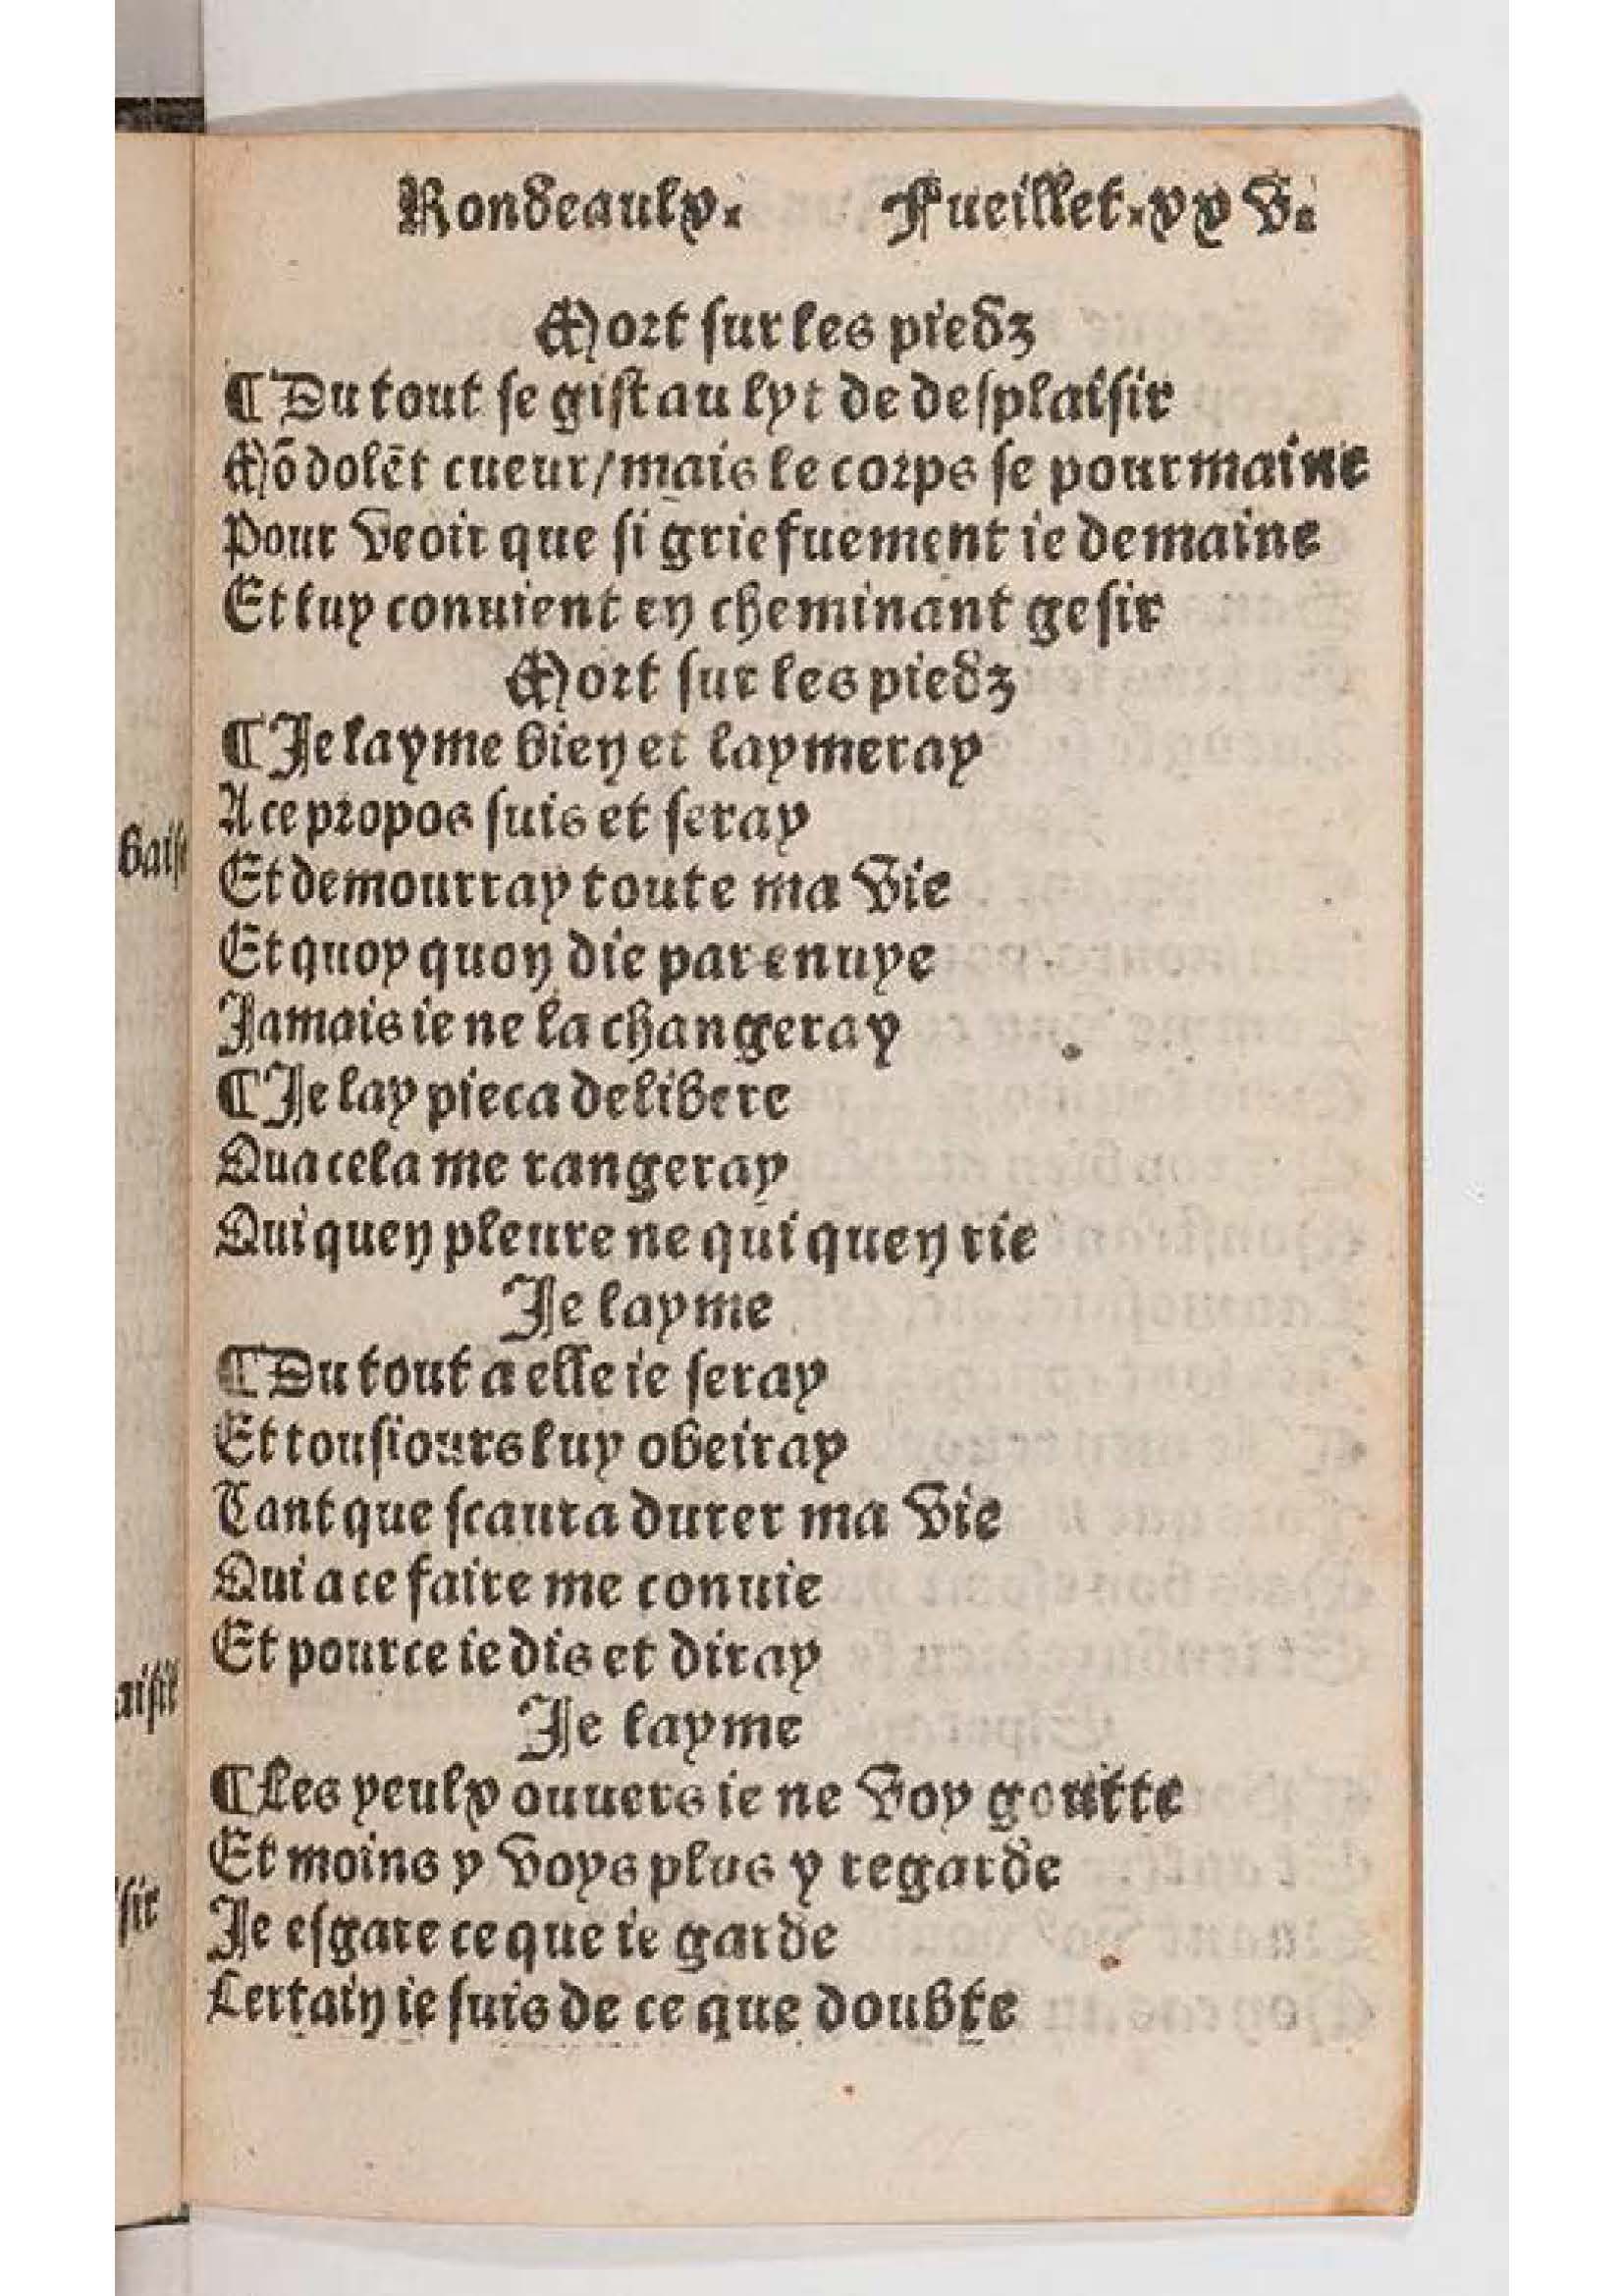 Rondeaulx. Fueillet.xxv.
Mort sur les piedz
¶ Du tout se gist au lyt de desplaisir
Mõ dolẽt cueur/ mais le corps se pourmaine
Pour veoir que si griefuement ie demaine
Et luy conuient en cheminant gesir
Mort sur les piedz
¶ Je layme bien et laymeray
A ce propos suis et seray
Et demourray toute ma vie
Et quoy quon die par enuye
Jamais ie ne la changeray
¶ Je lay pieca delibere
Qua cela me rangeray
Qui quen pleure ne qui quen rie
Je layme
¶ Du tout a elle ie seray
Et tousiours luy obeiray
Tant que scaura durer ma vie
Qui a ce faire me conuie
Et pource ie dis et diray
Je layme
¶ Les yeulx ouuers ie ne voy goutte
Et moins y voys plus y regarde
Je esgare ce que ie garde
Certain ie suis de ce que doubte